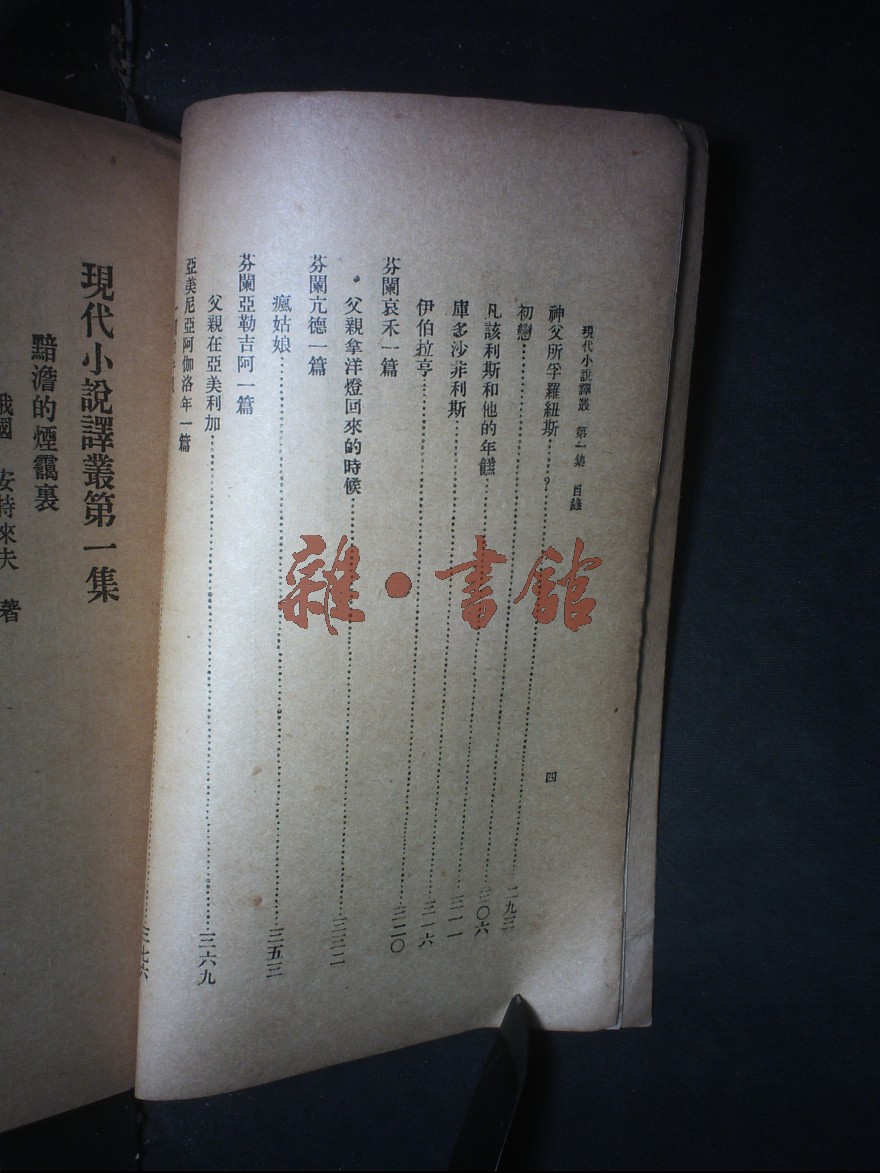 現代小說譯叢 第一集 目錄
四
神父所孚羅紐斯……?……二九三
初戀……三〇六
凡該利斯和他的年饈……三一一
庫多沙非利斯……三一六
伊伯拉亨……三二〇
芬蘭哀禾一篇
父親拿洋燈回來的時候……三三二
芬蘭亢德一篇
瘋姑娘……三五三
芬蘭亞勒吉阿一篇
父親在亞美利加……三六九
亞美尼亞阿伽洛年一篇
……三七六
現代小說譯叢第一集
黯澹的煙靄裏
俄國 安特來夫 著
雜·書館